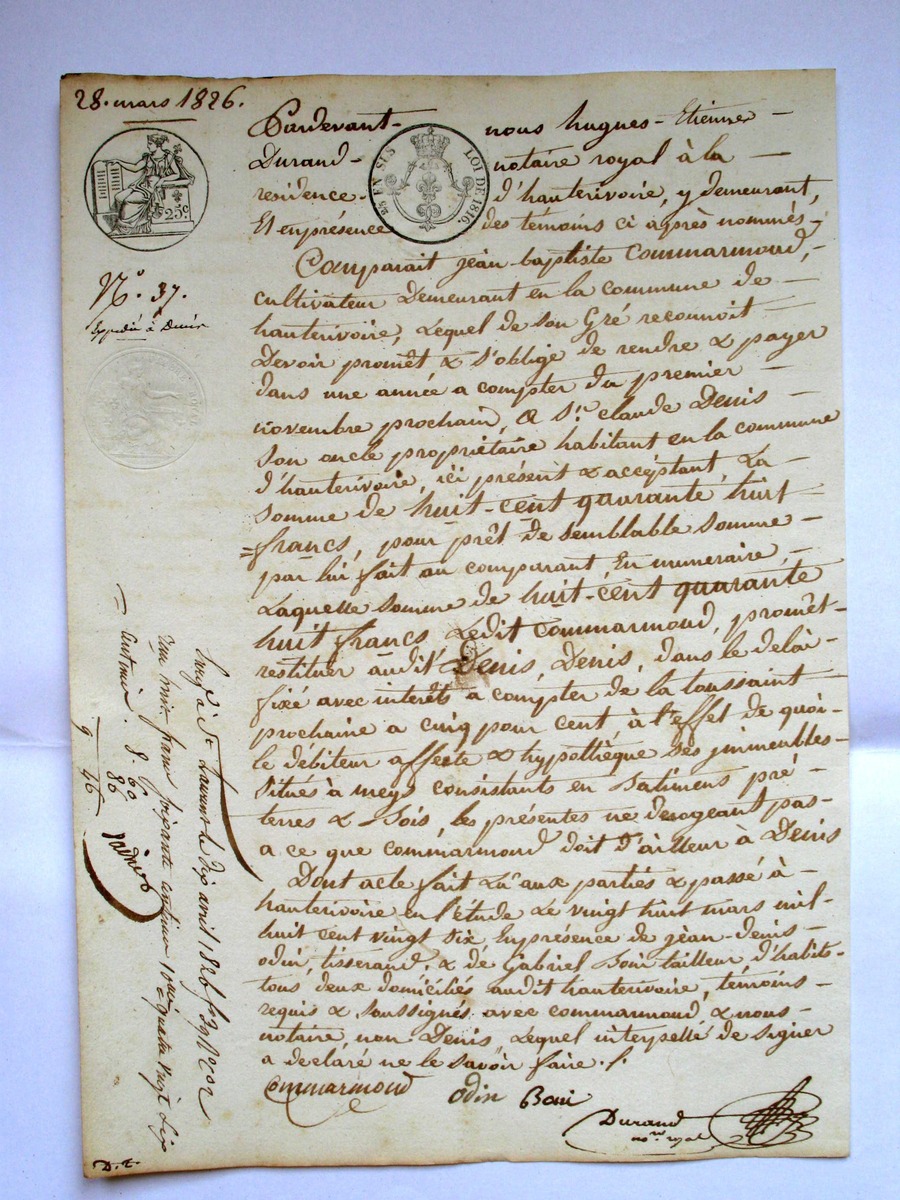 28. mars 1826.
25c
EN SUS
LOI DE 1816.
N.o 37.
Expédié à Denis
Pardevant nous hugues-Etienne
Durand notaire royal à la
residence d'hauterivoire, y demeurant,
Et en présence des témoins ci après nommés,
Comparait jean-baptiste Commarmond,
cultivateur Demeurant en la commune de
hauterivoire, Lequel de son Gré reconnoit
Devoir promêt, & s'oblige de rendre & payer
dans une année a compter du premier
novembre prochain, à Sr. claude Denis
son oncle propriétaire habitant en la commune
d'hauterivoire, ici présent & accéptant, La
somme de huit-cent quarante huit
francs, pour prêt de semblable somme
par lui fait au comparant En numeraire,
Laquelle somme de huit-cent quarante
huit francs Ledit Commarmond, promêt
restituer audit Denis, Denis, dans le delai
fixé avec interêt a compter de la toussaint
prochaine a cinq pour cent à l'effet de quoi
le débiteur affecte & hypothèque ses immeubles
Situés à meys consistants en Batimens pré
terres & Bois, les présentes ne derogeant pas
a ce que commarmond doit d'ailleur à Denis
Dont acte fait Lû aux parties & passé à
hauterivoire en l'étude Le vingt huit mars mil
huit cent vingt six, En présence de jean-denis
odin, tisserand, & de Gabriel Boni tailleur d'habits
tous deux domiciliés audit hauterivoire, témoins
requis & soussignés avec commarmond & nous
notaire, non Denis, Lequel interpellé de signer
a declaré ne le savoir faire./.
Commarmond odin Boni
Durand
nore. royal
à St. Laurent le dix avril 1826 fo 39 Ro
huit francs soixante centimes 10me quatre vingt six
centimes. 8. 60
86
9 46
D. E.